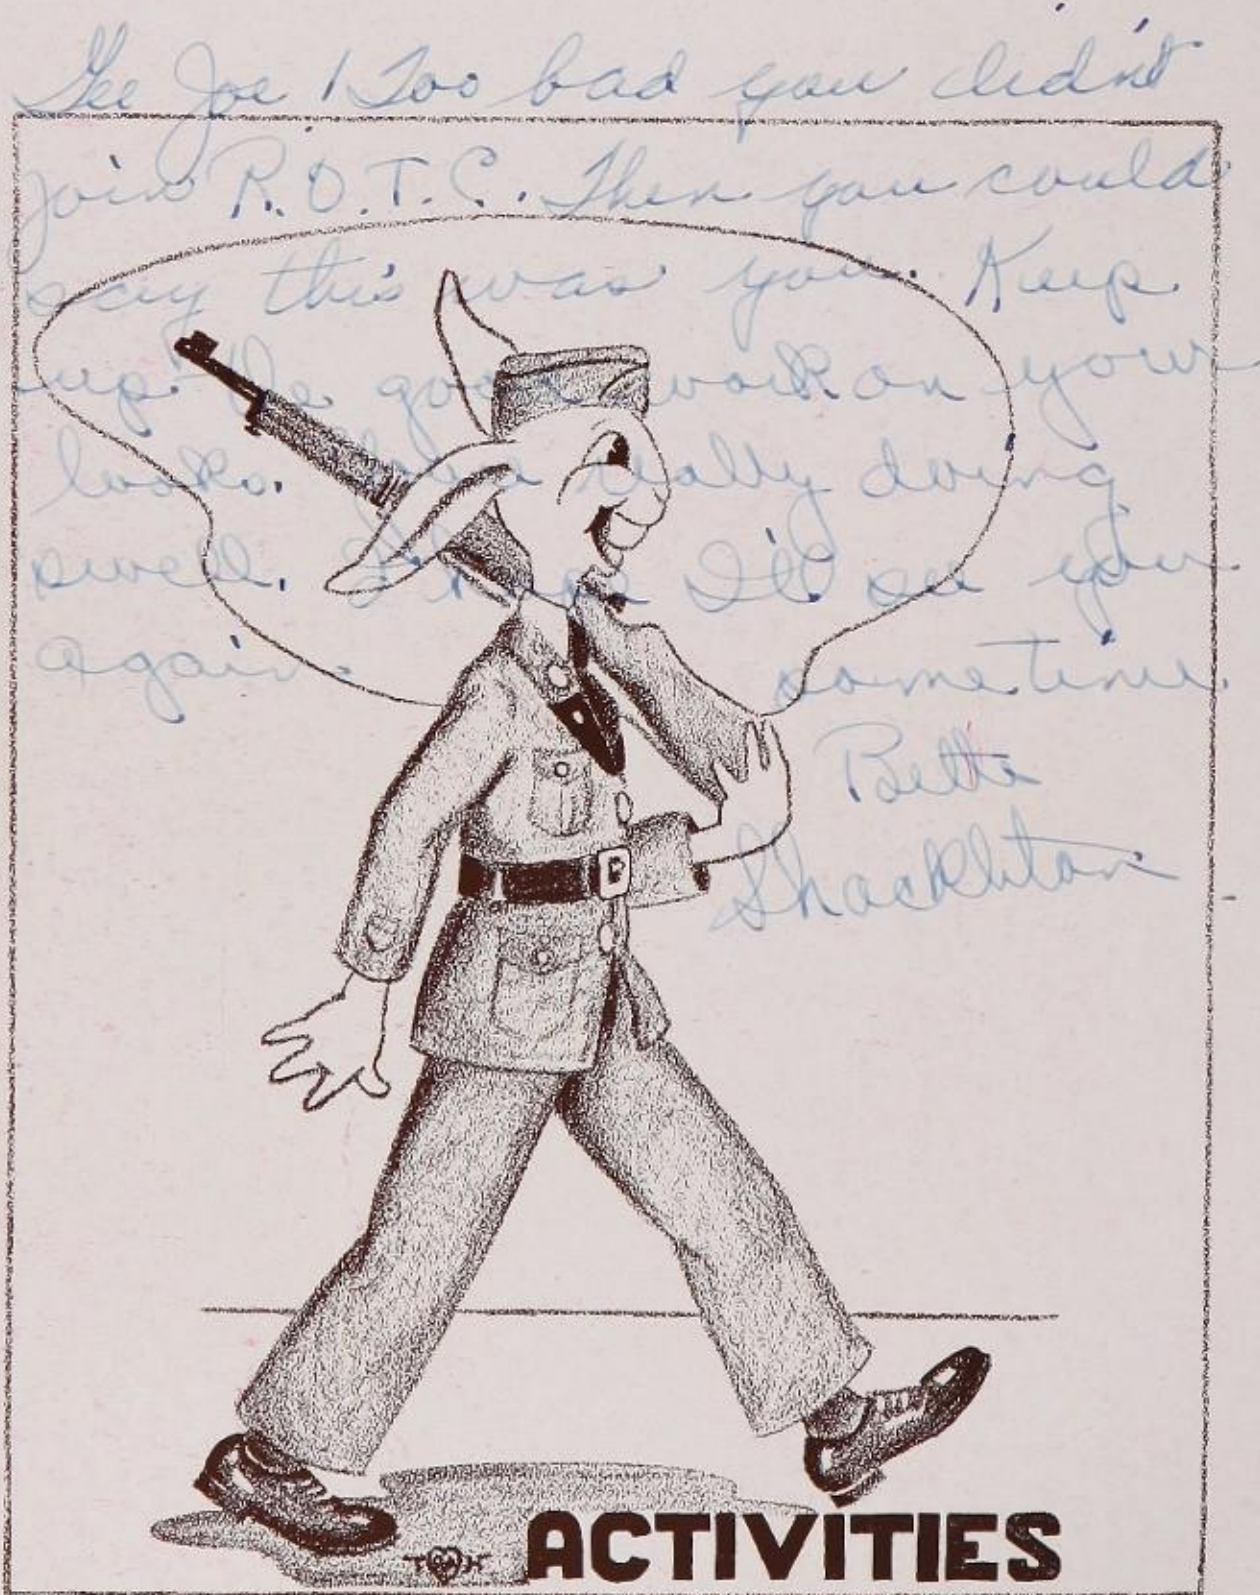 Gee Joe! Too bad you didn't
join R.O.T.C. Then you could
say this was you. Keep
up the good work on your
looks. really doing
swell. I hope I'll see you
again sometime.
Bette
Shackleton
ACTIVITIES